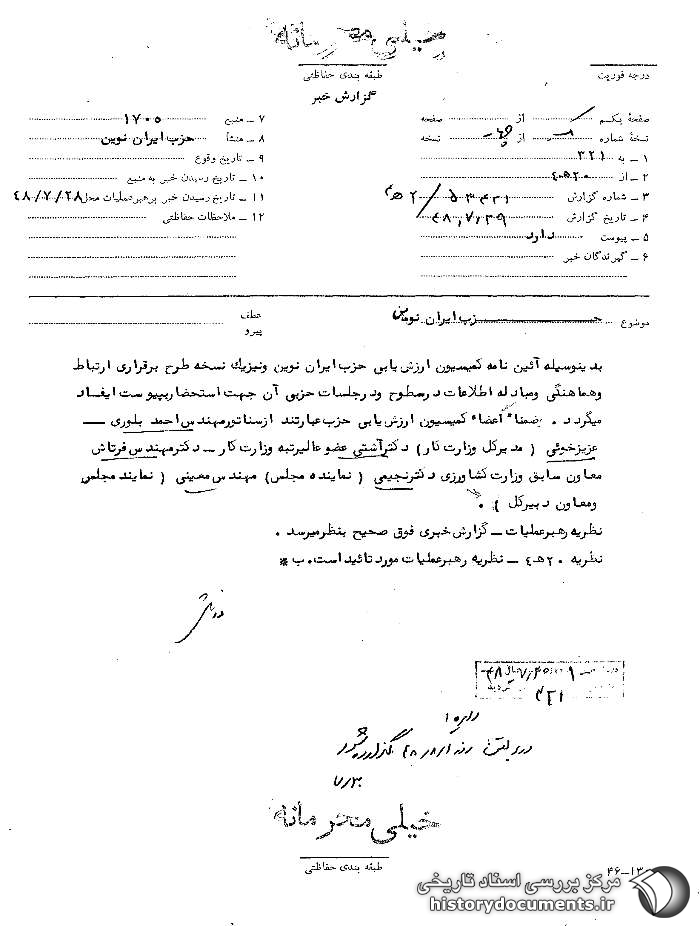 خیلی محرمانه
طبقه بندی حفاظتی
درجه فوریت
گزارش خبر
صفحهٔ یکم از صفحه
نسخهٔ شماره از نسخه
۱ ـ به ۳۲۱
۲ ـ از ۲۰ ه‍ ٤
۳ ـ شماره گزارش
۴ ـ تاریخ گزارش ۴۸٫۷٫۲۹
۵ ـ پیوست دارد
۶ ـ گیرندگان خبر
۷ ـ منبع ۱۷۰۵
۸ ـ منشأ حزب ایران نوین
۹ ـ تاریخ وقوع
۱۰ ـ تاریخ رسیدن خبر به منبع
۱۱ ـ تاریخ رسیدن خبر برهبرعملیات محل ۴۸/۷/۲۸
۱۲ ـ ملاحظات حفاظتی
موضوع حزب ایران نوین
عطف
پیرو
بدینوسیله آئین نامه کمیسیون ارزش یابی حزب ایران نوین ونیزیك نسخه طرح برقراری ارتباط
وهماهنگی ومبادله اطلاعات درسطوح ودرجلسات حزبی آن جهت استحضاربپیوست ایفـاد
میگردد . ضمنا" اعضاء کمیسیون ارزش یابی حزب عبارتند ازسناتورمهندس احمد بلوری ـــ
عزیزخوئی ( مدیرکل وزارت کار) دکترآشتی عضوعالیرتبه وزارت کار ــ دکترمهندس فرتاش
معاون سابق وزارت کشاورزی دکترنجیمی ( نماینده مجلس) مهندس معینی ( نمایند مجلس
ومعاون دبیرکل ) .
نظریه رهبرعملیات ــ گزارش خبری فوق صحیح بنظرمیرسد .
نظریه ۲۰ ه‍ ٤ ــ نظریه رهبرعملیات مورد تائید است. ب *
۳۲۱
۷/۳۰
خیلی محرمانه
طبقه بندی حفاظتی
۴۶-۱۳
مرکز بررسی اسناد تاریخی
historydocuments.ir